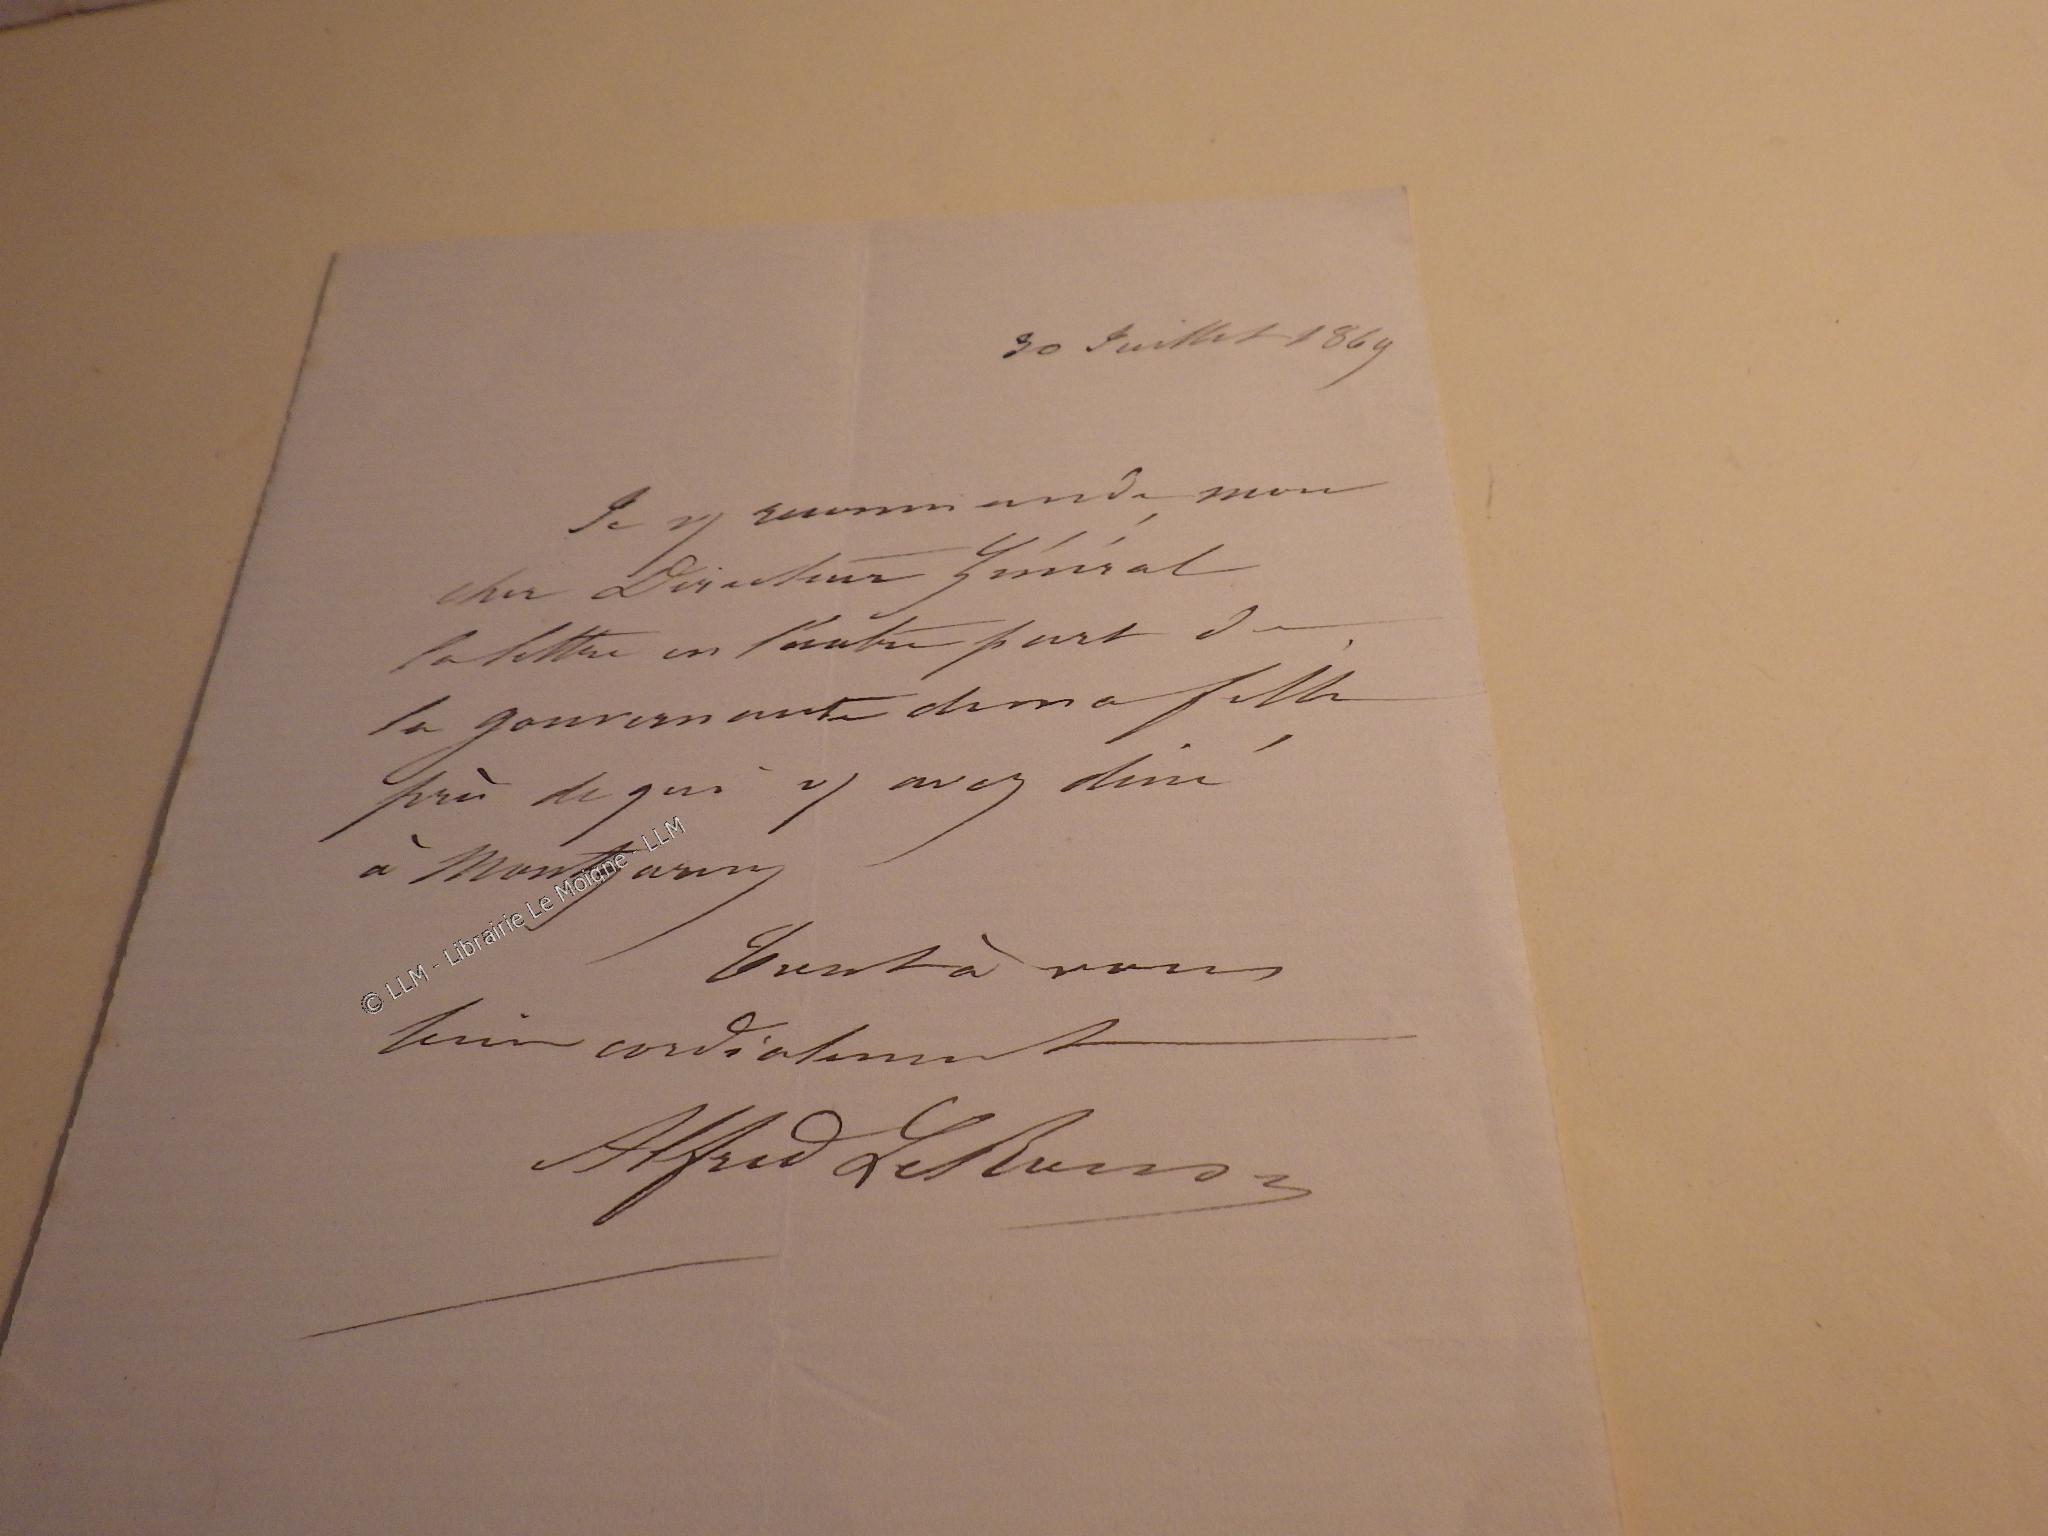 30 Juillet 1869
Je v recommande mon
cher Directeur Général
la lettre en l'autre part de
la gouvernante de ma fille
près de qui v avez diné
à
Tout à vous
bien cordialement
Alfred Le Roux
© LLM - Librairie Le Moigne - LLM